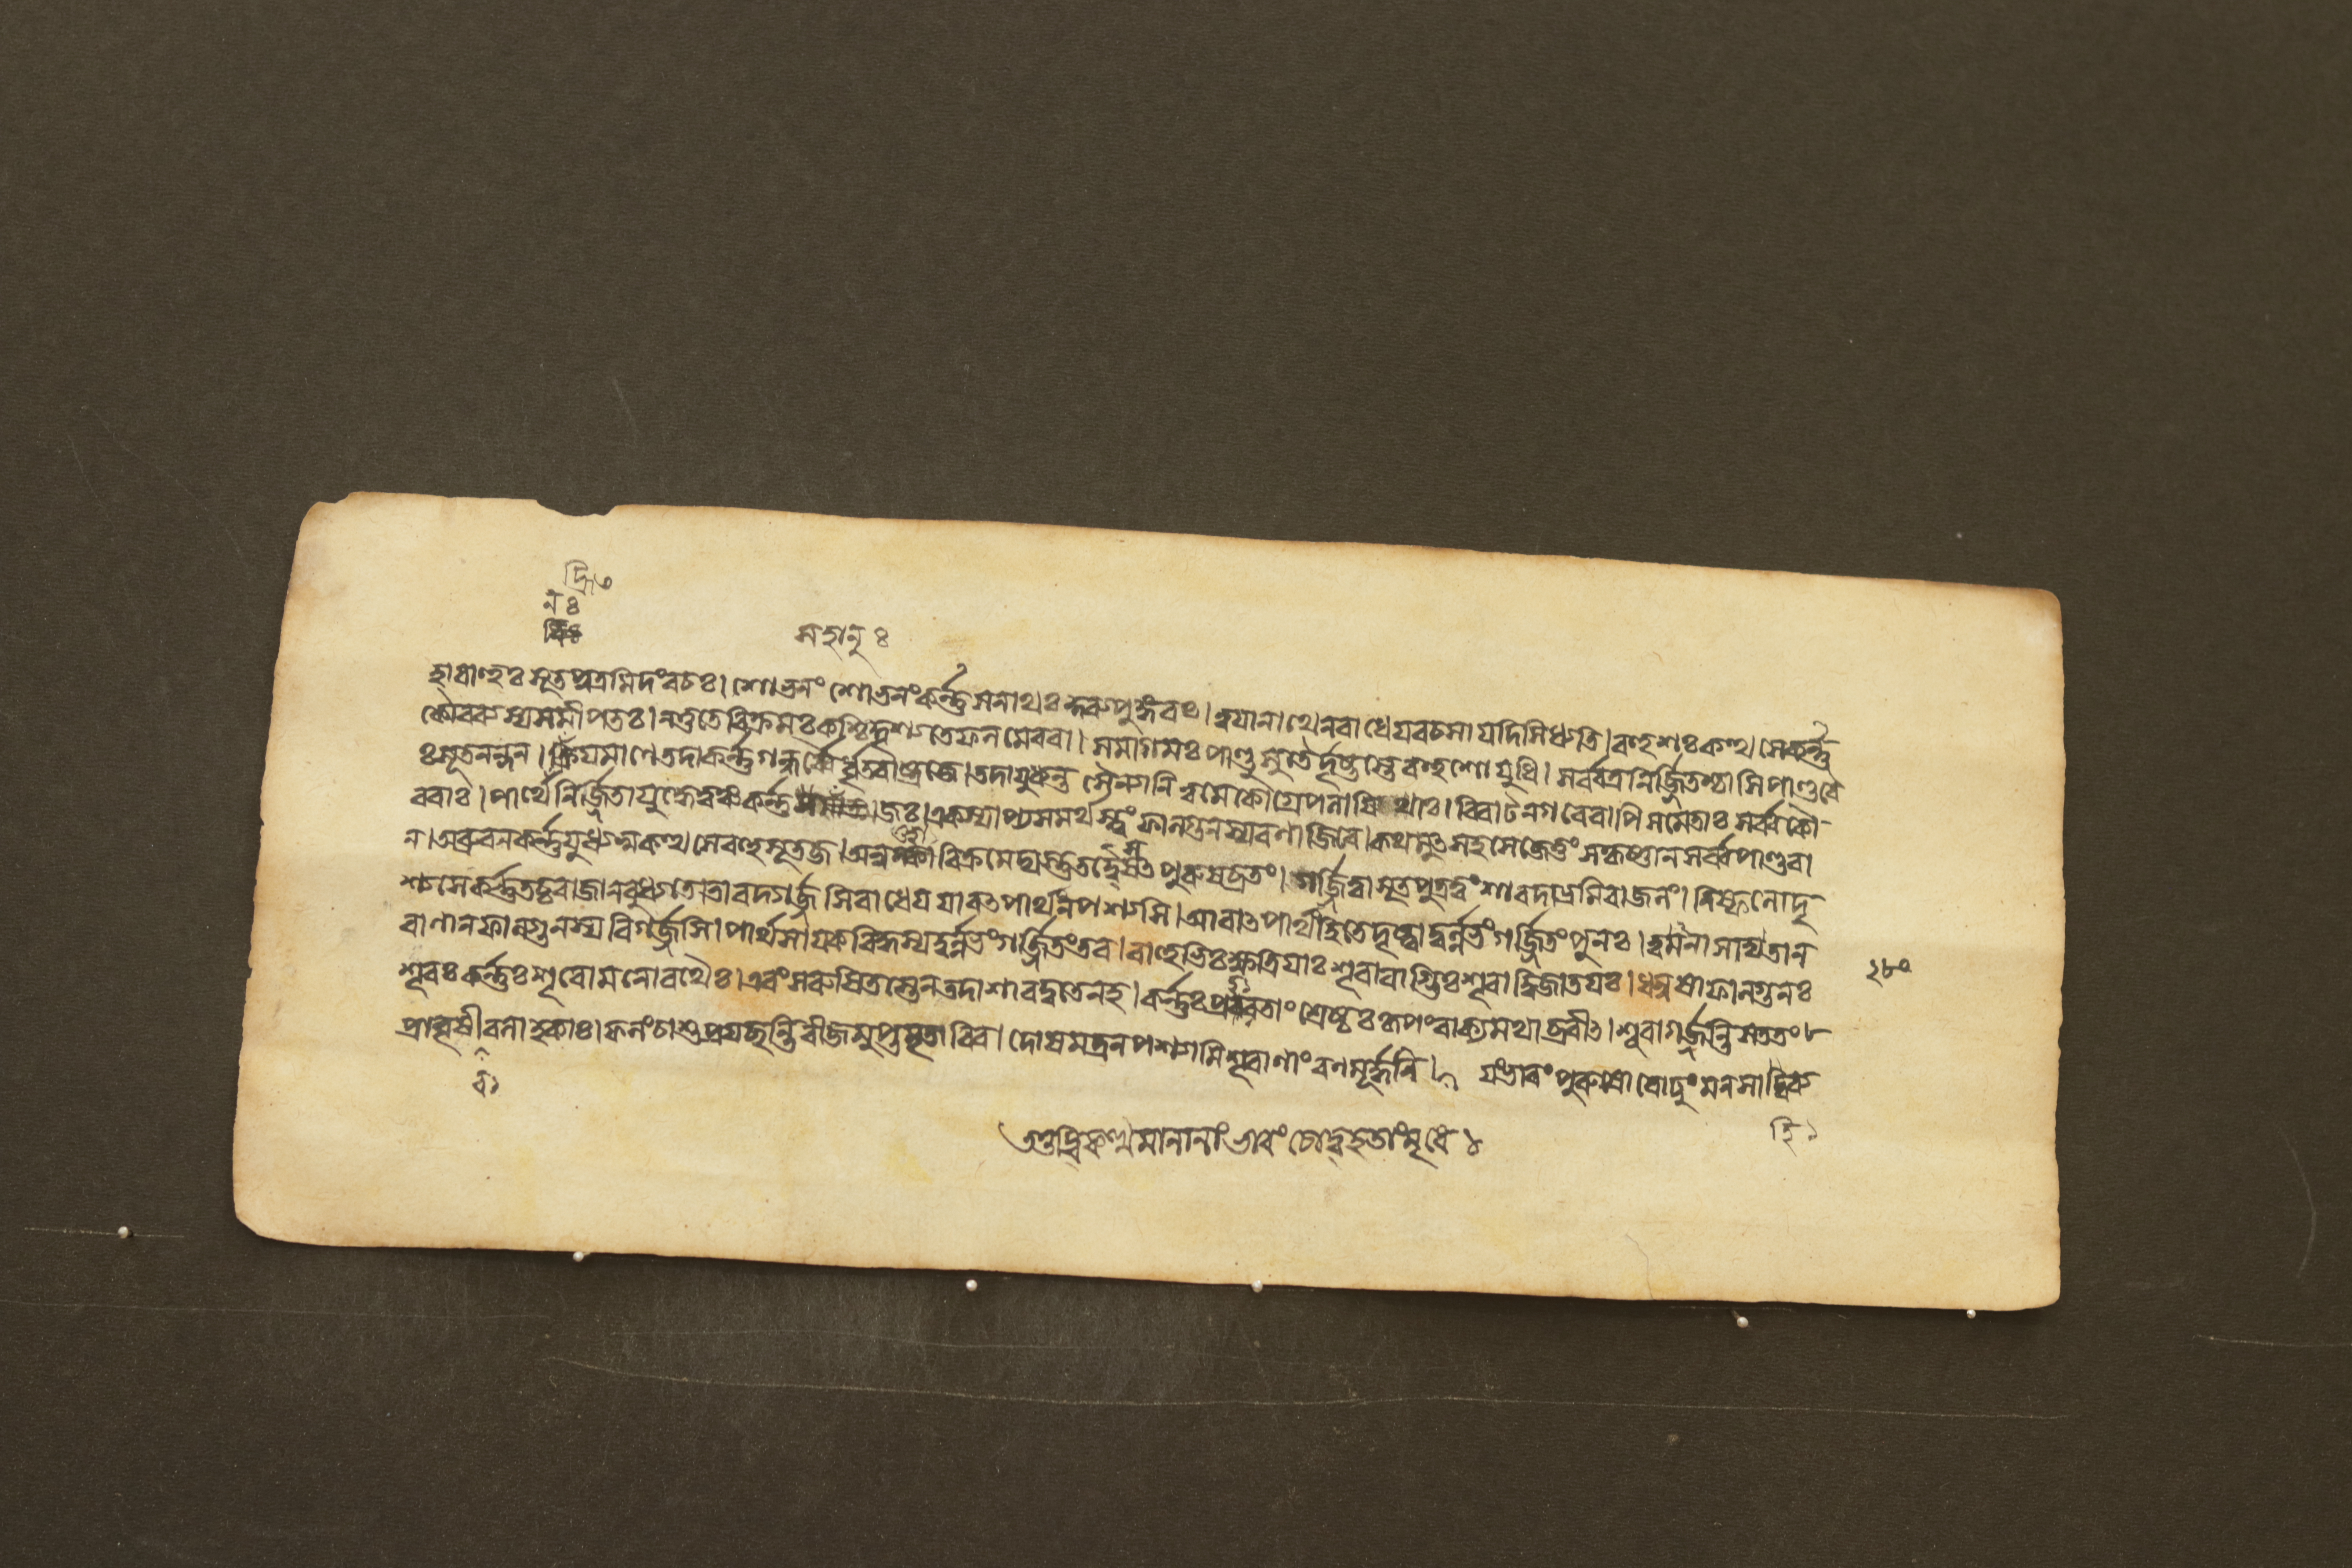 মহানুঃ
হাবাহুঃ সূতপুত্রমিদংবচঃ। শোভনং শোভনংকর্ন্ন সনাথঃ কুরুপুঙ্গবঃ। ত্বযানাথেনরাধেযবচসা যদিসিধ্যতি। বহুশঃ কত্থসেকর্ন্ন
কৌরবস্যসমীপতঃ। নতুতেবিক্রমঃ কশ্চিদ্দৃশ্যতেফলমেববা। সমাগমঃ পাণ্ডুসুতৈর্দৃষ্টস্তেবহুশোযুধি। সর্ব্বত্রনির্জ্জিতশ্চাসিপাণ্ডবৈ
ঃ সূতনন্দন। হ্রিযমাণেতদাকর্ন্নগন্ধর্ব্বৈর্ধৃতরাষ্ট্রজে। তদাযুধ্যন্ত সৈন্যানি ত্বমেকোগ্রেপলাযিথাঃ। বিরাটনগরেবাপিসমেতাঃ সর্ব্বকৌ-
রবাঃ। পার্থেনির্জ্জিতাযুদ্ধেত্বঞ্চকর্ন্ন জঃ। একস্যাপ্যসমর্থস্ত্বং ফাল্গুনস্যরণাজিরে। কথমুৎসহসেজেতুং সকৃষ্ণান্সর্ব্বপাণ্ডবা
ন্। অব্রুবন্কর্ন্নযুধ্যস্বকত্থসেবহুসূতজ। বিক্রমেদ্যস্তুতদ্বৈসৎপুরুষব্রতং। গর্জ্জিত্বাসূতপুত্রত্বংশারদাভ্রমিবাজলং। নিষ্ফলোদৃ
শ্যসেকর্ন্নতচ্চরাজানবুধ্যতে। তাবদ্গর্জ্জসিরাধেয যাবৎপার্থংনপশ্যসি। আরাৎপার্থংহিতেদৃষ্ট্বাদুর্ল্লভংগর্জ্জিতংপুনঃ। ত্বমনাসাদ্যতান্
বাণান্ফাল্গুনস্যবিগর্জ্জসি। পার্থসাযকবিদ্ধস্যদুর্ল্লভংগর্জ্জিতংতব। বাহুভিঃ ক্ষত্রিযাঃ শূরাবাগ্ভিঃ শূরাদ্বিজাতযঃ। ধনুষাফাল্গুনঃ
শূরঃ কর্ন্নঃ শূরোমনোরথৈঃ। এবংপরুষিতস্তেনতদাশারদ্বতেনহ। কর্ন্নঃ প্রহরতাং শ্রেষ্ঠঃ কৃপংবাক্যমথাব্রবীৎ। শূরাগর্জ্জন্তিসততং
প্রাবৃষীবলাহকাঃ। ফলংচাশুপ্রযচ্ছন্তিবীজমুপ্তমৃতাবিব। দোষমত্রনপশ্যামিশূরাণাংরণমূর্দ্ধনি। যংভারং পুরুষোবোঢুং মনসা
২৮০
বিকত্থমানানাং ভারং চোদ্বহতাংমৃধে